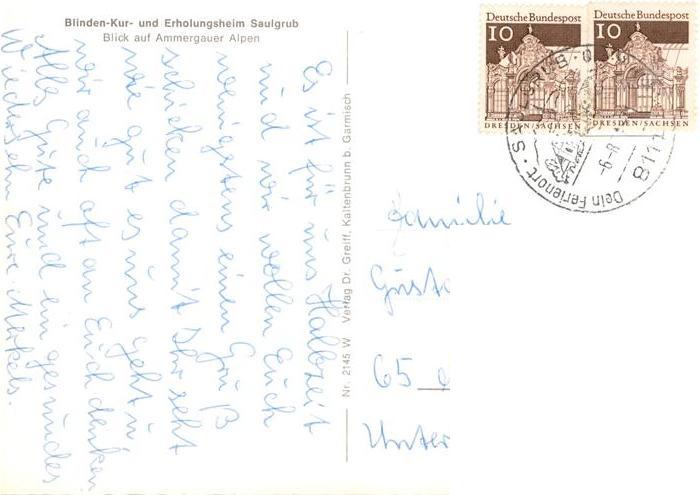 Blinden-Kur- und Erholungsheim Saulgrub
Blick auf Ammergauer Alpen
Es ist für uns Halbzeit
und wir wollen Euch
wenigstens einen Gruß
schicken damit Ihr seht
wie gut es uns geht u
wir auch oft an Euch denken
Alles Gute und ein gesundes
Wiedersehn Eure Merkels.
Nr. 2145 W Verlag Dr. Greiff, Kaltenbrunn b. Garmisch
Deutsche Bundespost
10
DRESDEN/SACHSEN
Deutsche Bundespost
10
DRESDEN/SACHSEN
8111
-6.-8
Dein Ferienort
Familie
Gust
65
Unter